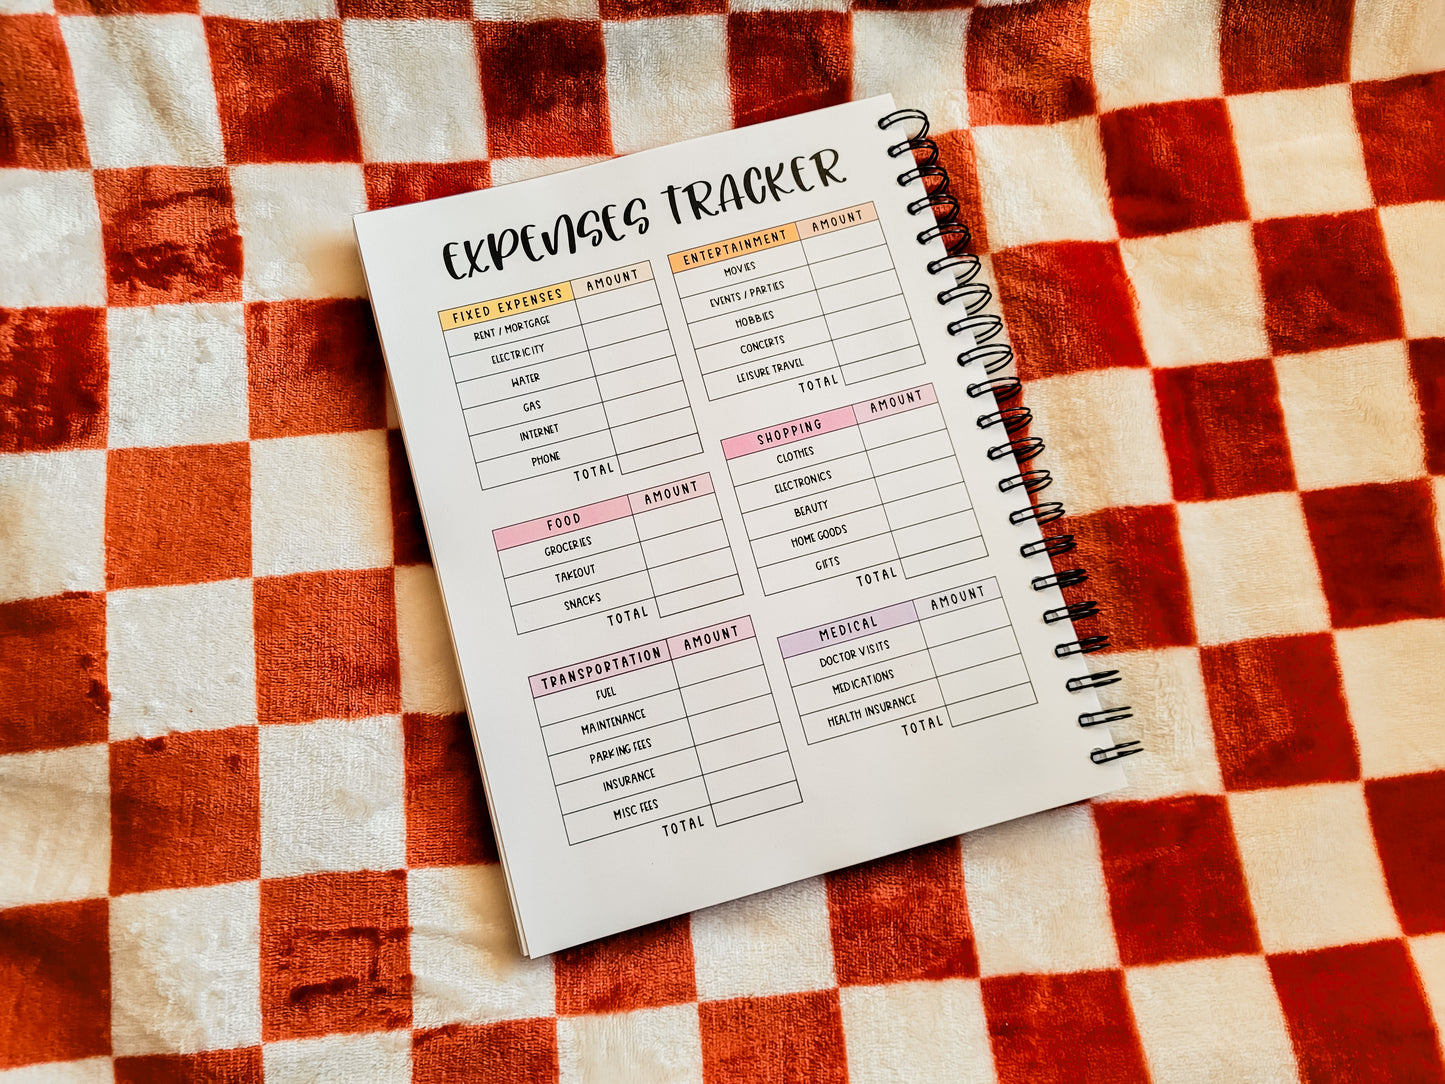 EXPENSES TRACKER
FIXED EXPENSES AMOUNT
RENT / MORTGAGE
ELECTRICITY
WATER
GAS
INTERNET
PHONE
TOTAL
FOOD AMOUNT
GROCERIES
TAKEOUT
SNACKS
TOTAL
TRANSPORTATION AMOUNT
FUEL
MAINTENANCE
PARKING FEES
INSURANCE
MISC FEES
TOTAL
ENTERTAINMENT AMOUNT
MOVIES
EVENTS / PARTIES
HOBBIES
CONCERTS
LEISURE TRAVEL
TOTAL
SHOPPING AMOUNT
CLOTHES
ELECTRONICS
BEAUTY
HOME GOODS
GIFTS
TOTAL
MEDICAL AMOUNT
DOCTOR VISITS
MEDICATIONS
HEALTH INSURANCE
TOTAL